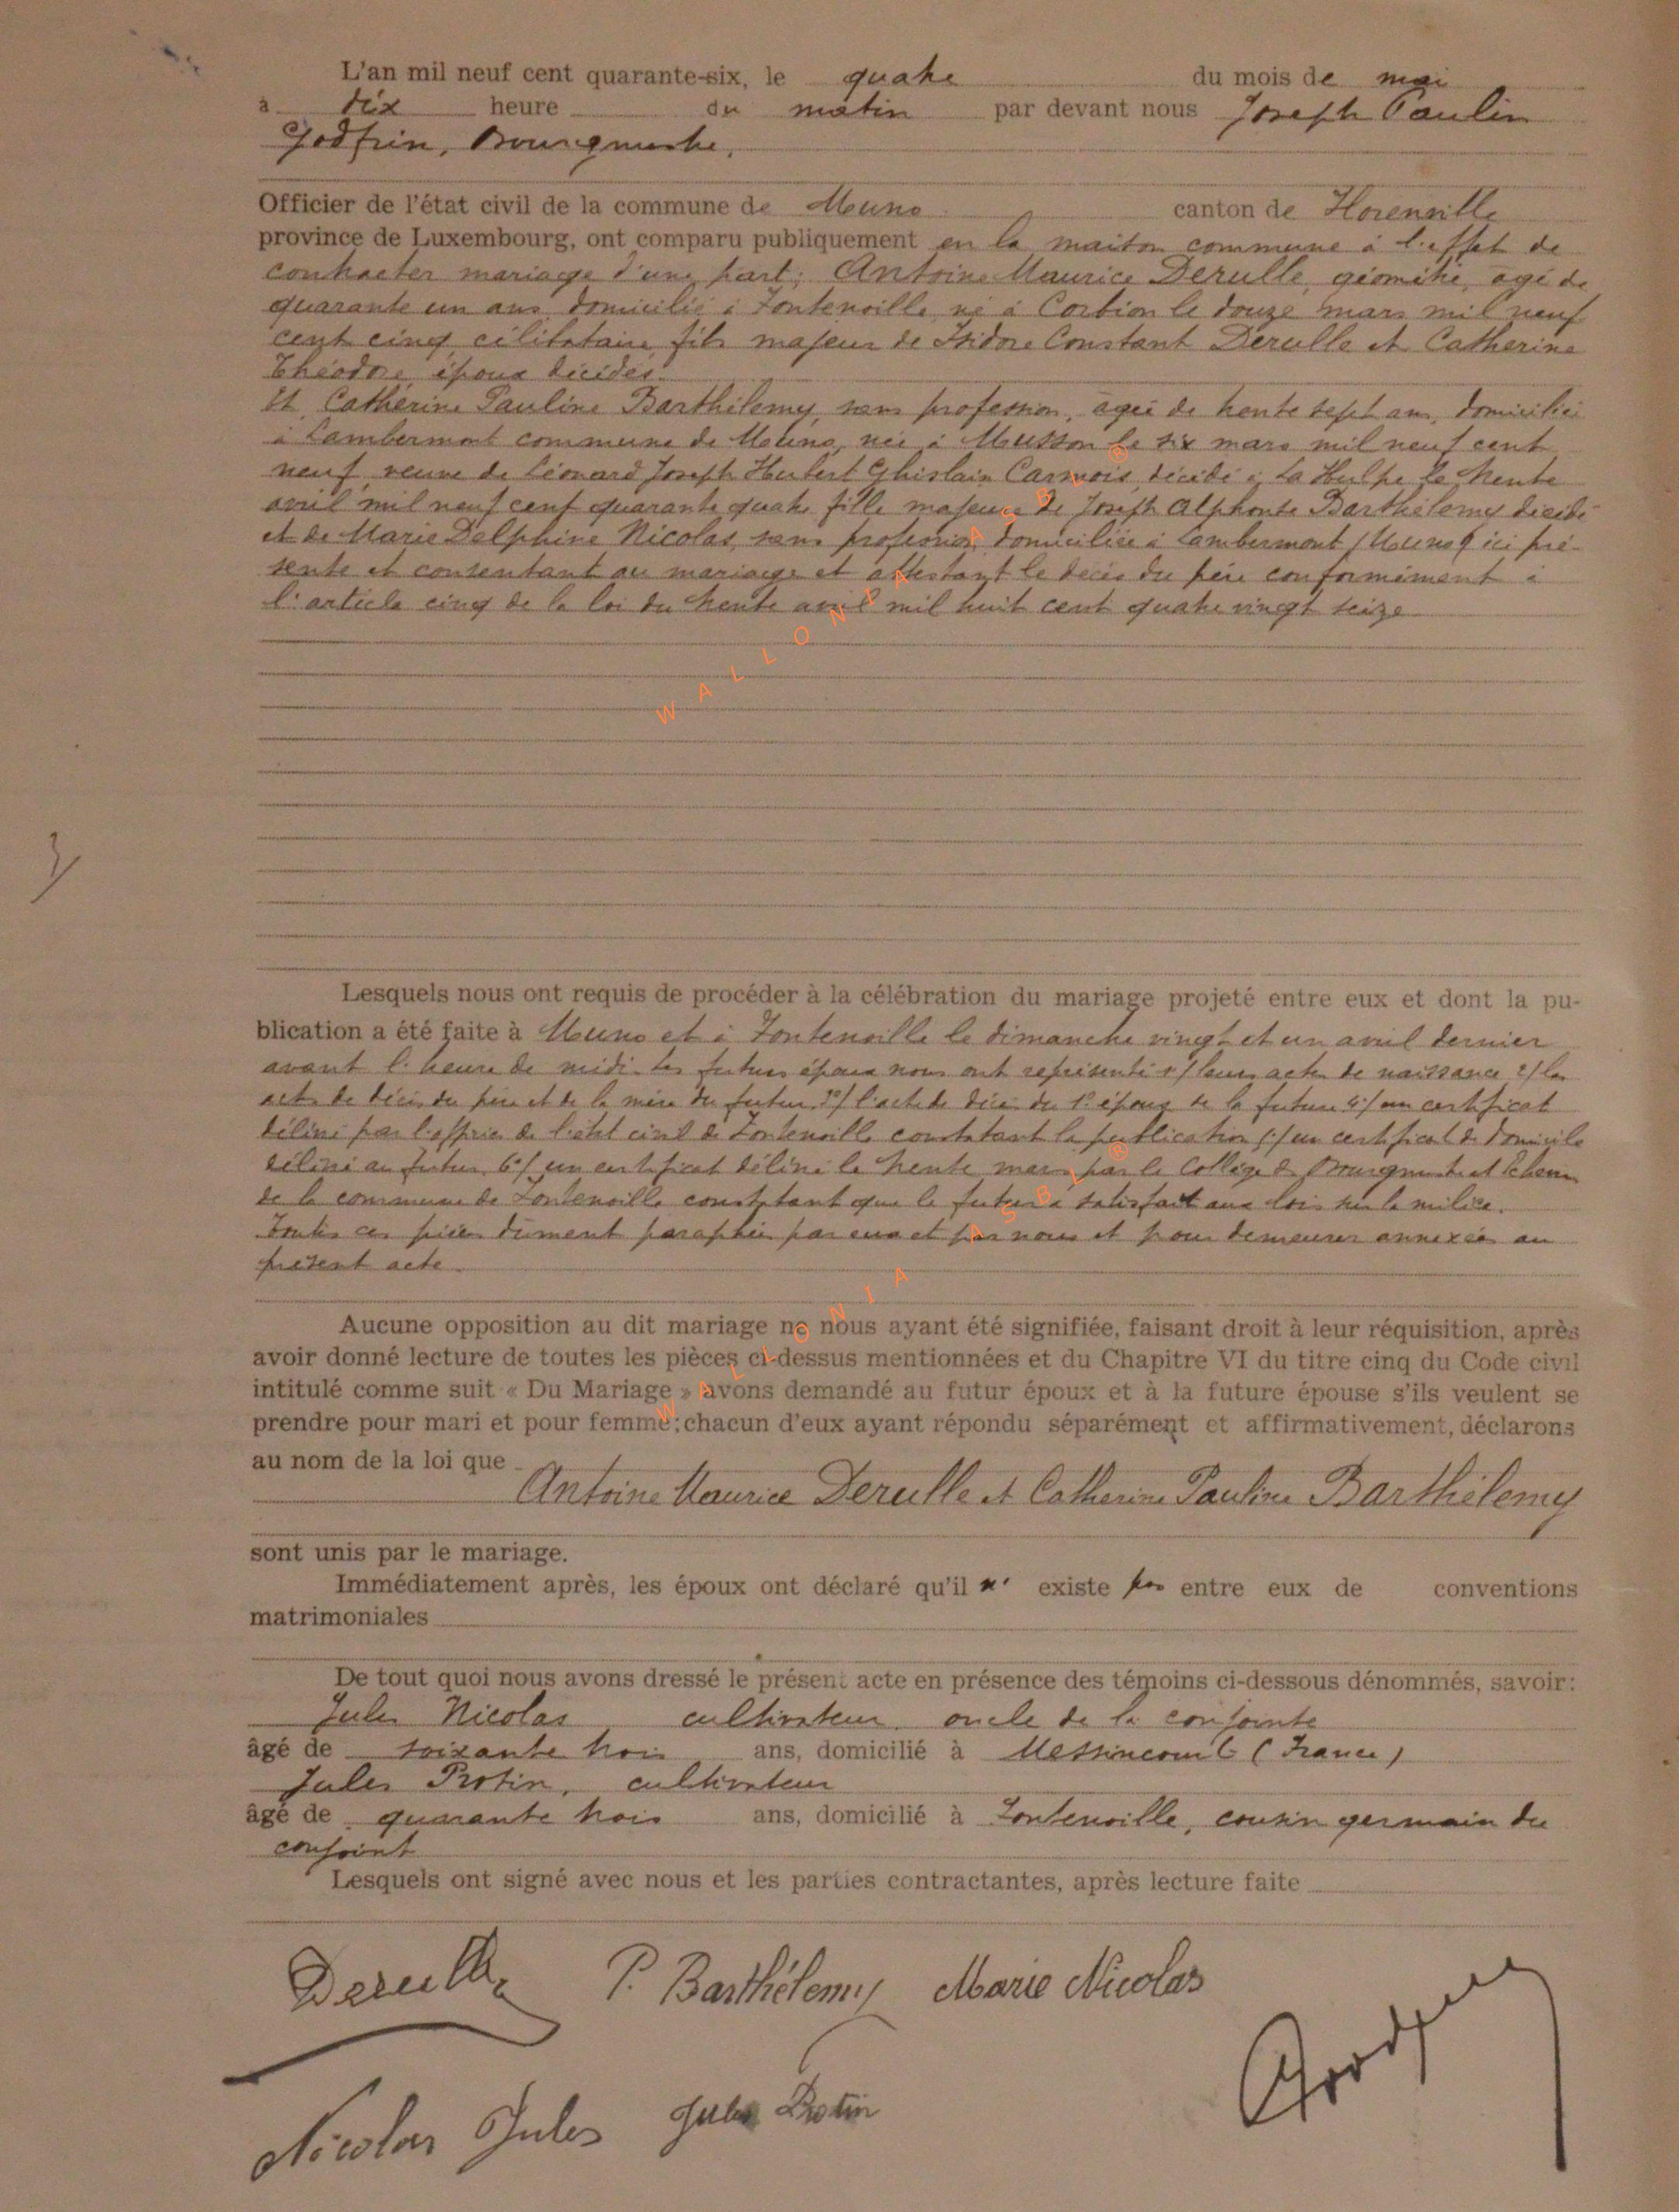 L'an mil neuf cent quarante-six, le quatre du mois de mai
à dix heure du matin par devant nous Joseph Paulin
Godfrin, Bourgmestre,
Officier de l'état civil de la commune de Muno canton de Florenville
province de Luxembourg, ont comparu publiquement en la maison commune à l'effet de
contracter mariage d'une part; Antoine Maurice Derulle, géomètre, agé de
quarante un ans domicilié à Fontenoille né à Corbion le douze mars mil neuf
cent cinq célibataire fils majeur de Isidore Constant Derulle et Catherine
Théodore, époux décédés.
Et Catherine Pauline Barthélemy, sans profession, agée de trente sept ans, domiciliée
à Lambermont commune de Muno, née à Musson le six mars mil neuf cent
neuf veuve de Léonard Joseph Hubert Ghislain Carnois, décédé à La Hulpe le trente
avril mil neuf cent quarante quatre fille majeure de Joseph Alphonse Barthélemy décédé
et de Marie Delphine Nicolas, sans profession, domiciliée à Lambermont (Muno) ici pré-
sente et consentant au mariage et attestant le décès du père conformément à
l'article cinq de la loi du trente avril mil huit cent quatre vingt seize
Lesquels nous ont requis de procéder à la célébration du mariage projeté entre eux et dont la pu-
blication a été faite à Muno et à Fontenoille le dimanche vingt et un avril dernier
avant l'heure de midi. les futurs époux nous ont représenté 1°/ leurs actes de naissance 2°/ les
actes de décès du père et de la mère du futur, 3°/ l'acte de décès du 1er époux de la future 4°/ un certificat
délivré par l'officier de l'état civil de Fontenoille constatant la publication 5°/ un certificat de domicile
délivré au futur, 6°/ un certificat délivré le trente mars par le Collège de Bourgmestre et Echevins
de la commune de Fontenoille constatant que le futur a satisfait aux lois sur la milice.
Toutes ces pièces dument paraphées par eux et par nous et pour demeurer annexées au
présent acte.
Aucune opposition au dit mariage ne nous ayant été signifiée, faisant droit à leur réquisition, après
avoir donné lecture de toutes les pièces ci-dessus mentionnées et du Chapitre VI du titre cinq du Code civil
intitulé comme suit « Du Mariage » avons demandé au futur époux et à la future épouse s'ils veulent se
prendre pour mari et pour femme; chacun d'eux ayant répondu séparément et affirmativement, déclarons
au nom de la loi que
Antoine Maurice Derulle et Catherine Pauline Barthélemy
sont unis par le mariage.
Immédiatement après, les époux ont déclaré qu'il n' existe pas entre eux de conventions
matrimoniales
De tout quoi nous avons dressé le présent acte en présence des témoins ci-dessous dénommés, savoir:
Jules Nicolas cultivateur oncle de la conjointe
âgé de soixante trois ans, domicilié à Messincourt (France)
Jules Protin, cultivateur
âgé de quarante trois ans, domicilié à Fontenoille, cousin germain du
conjoint
Lesquels ont signé avec nous et les parties contractantes, après lecture faite
Derulle P. Barthélemy Marie Nicolas
Godfrin
Nicolas Jules Jules Protin
WALLONIA ASBL ®
WALLONIA ASBL ®